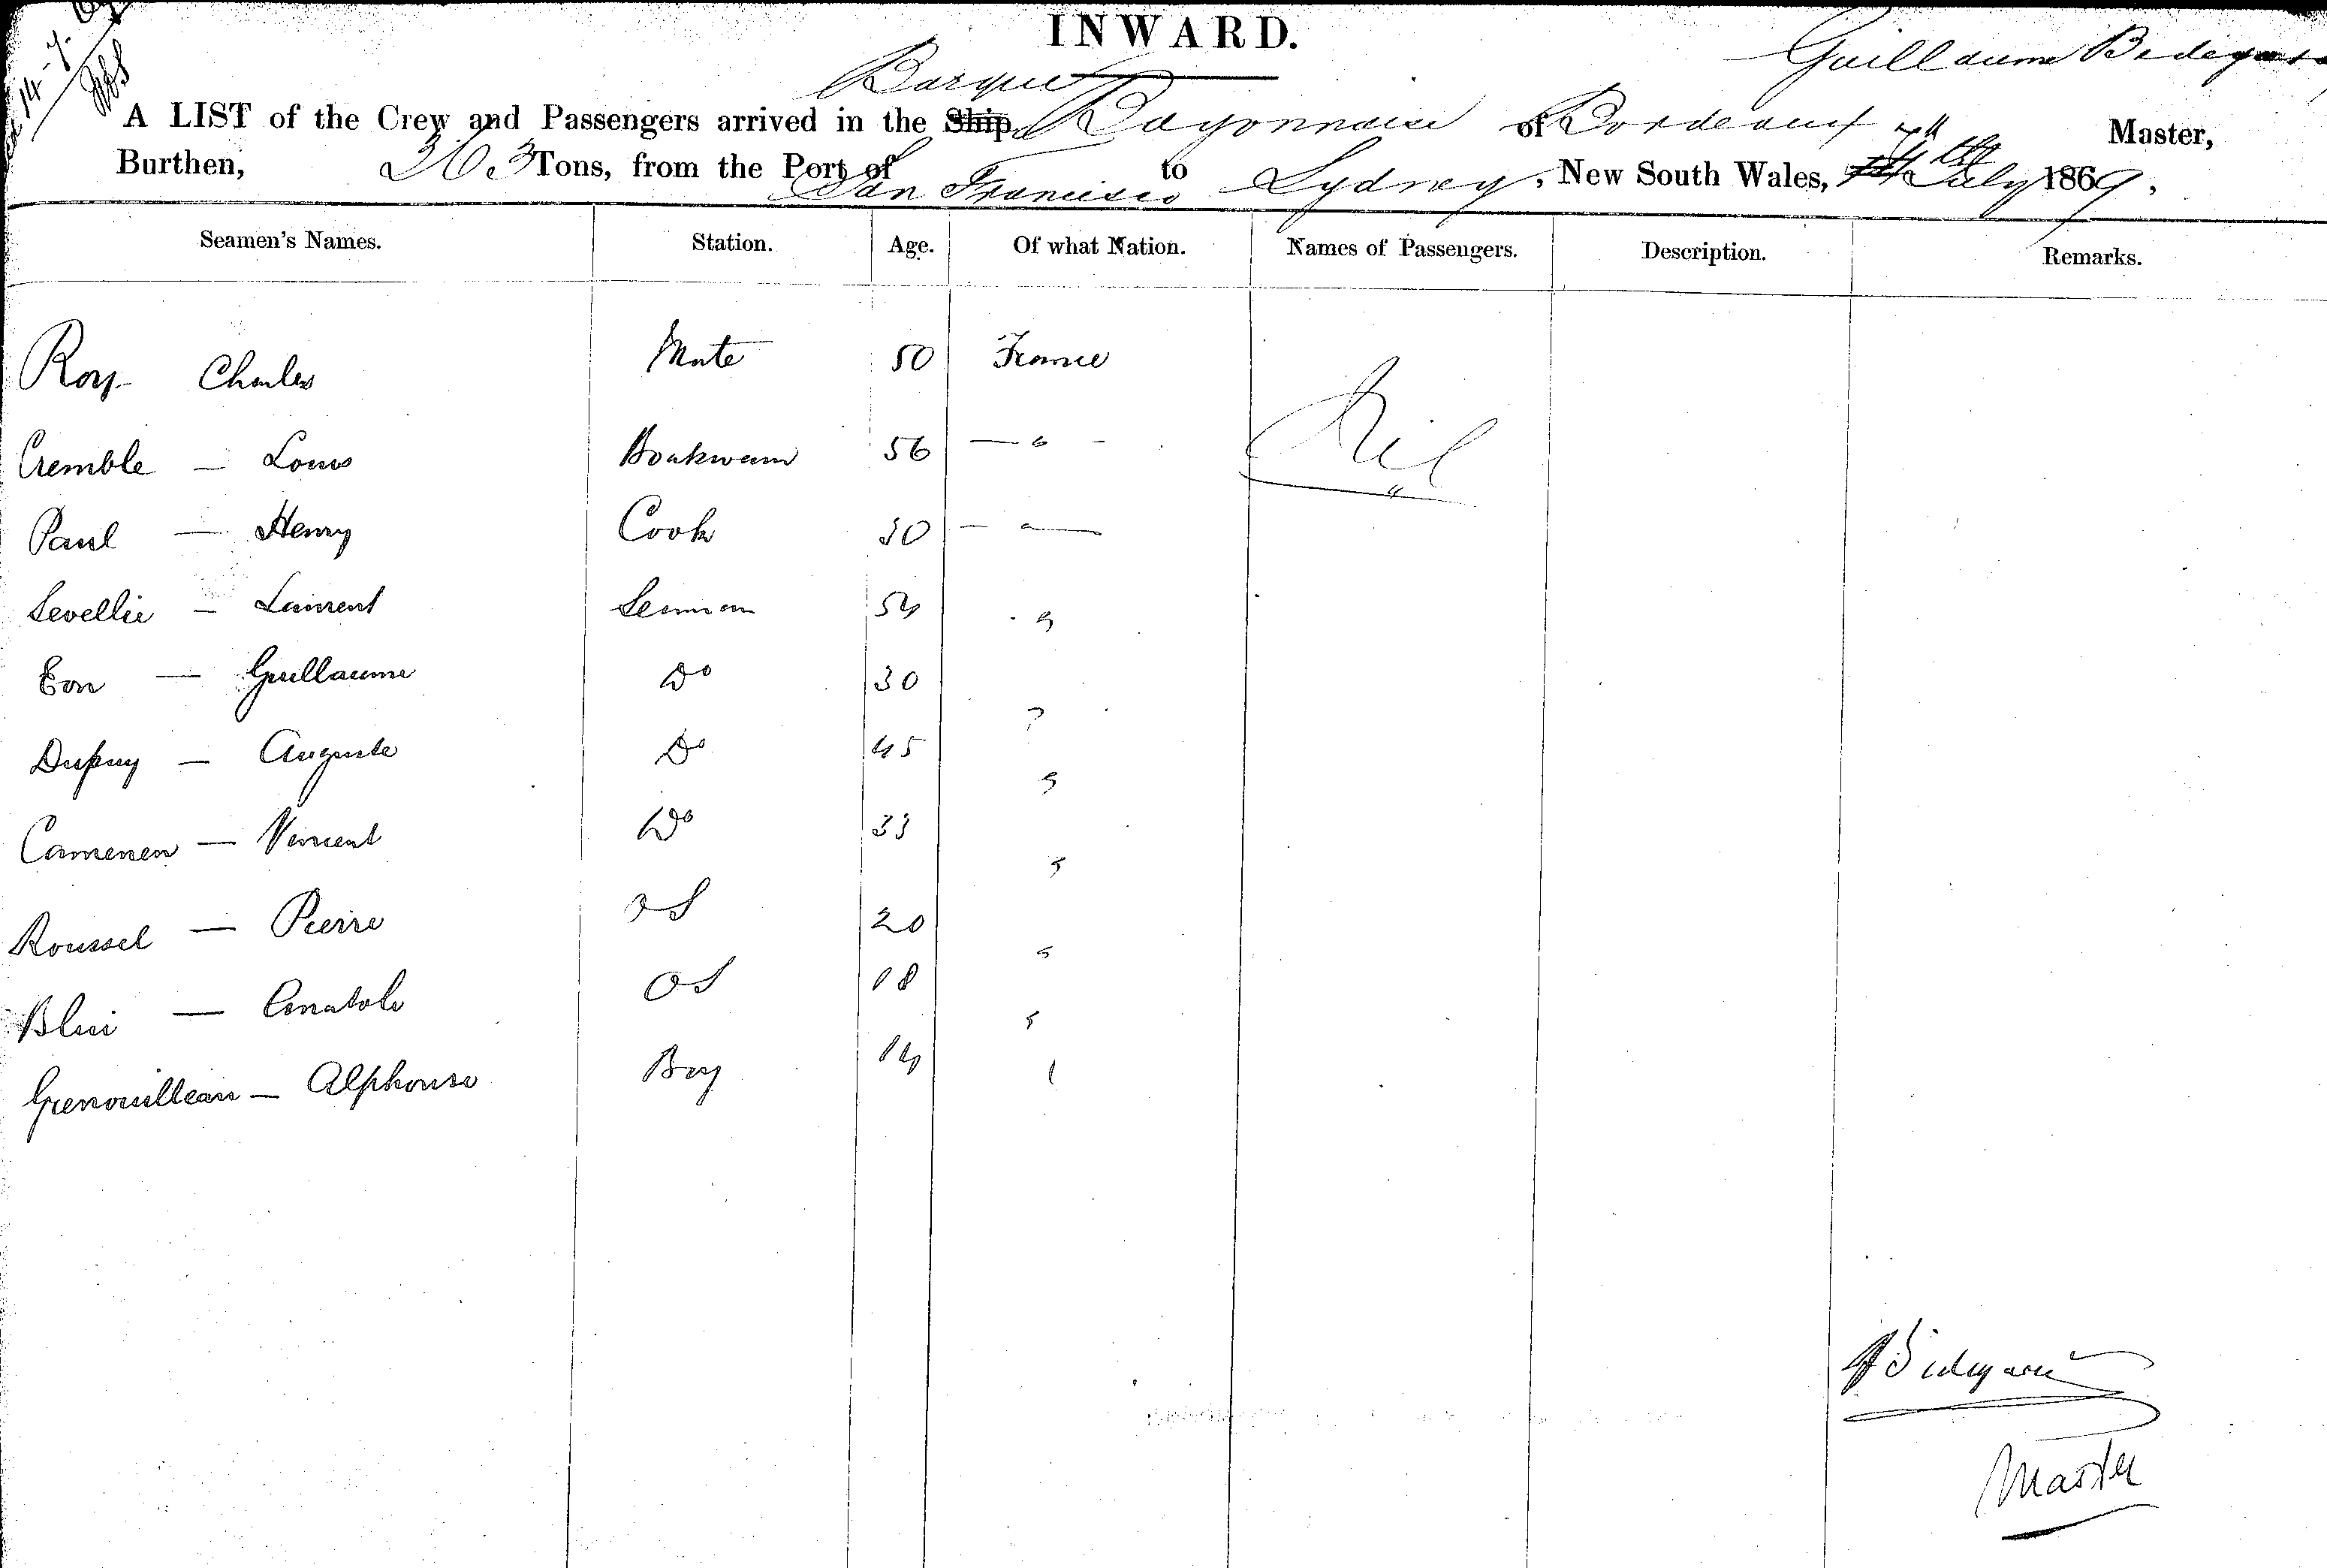 INWARD.
Guillaume Bedegar
Barque
A LIST of the Crew and Passengers arrived in the Ship Bayonnaise of Bordeaux Master,
Burthen, 363 Tons, from the Port of San Francisco to Sydney, New South Wales, July 1869.
Seamen's Names. Station. Age. Of what Nation. Names of Passengers. Description. Remarks.
Roy Charles Mate 50 France
Nil
Cremble — Louis 56 — " -
Paul — Henry Cook 30 - " —
Levellie — Laurent Seaman 54 "
Eon — Guillaume Do 30 "
Dupuy — Auguste Do 45 "
Camenen — Vincent Do 33 "
Roussel — Pierre OS 20 "
— Anatole OS 18 "
Grenouilleau — Alphonse Boy 14 "
Master